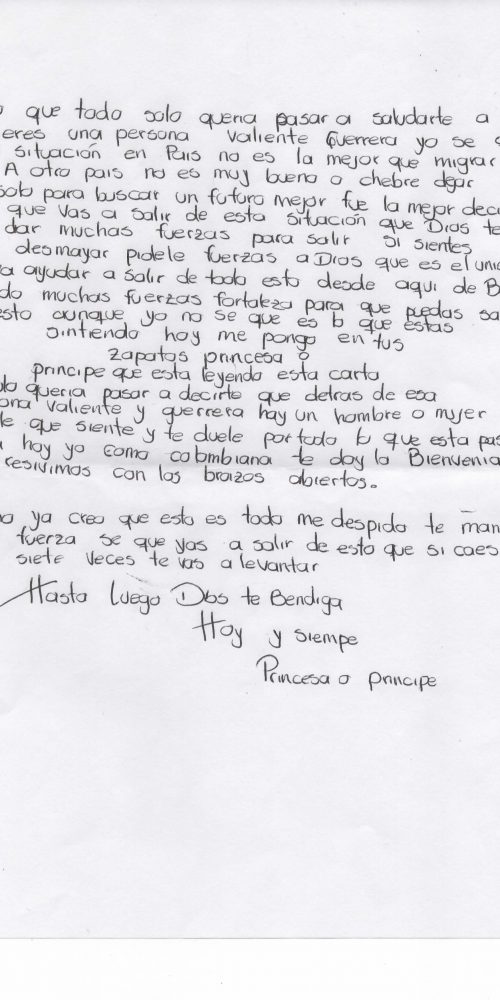 que todo solo queria pasar a saludarte a
eres una persona valiente Guerrera yo se
situación en Pais no es la mejor que migrar
A otro pais no es muy bueno o chebre dejar
solo para buscar un futuro mejor fue la mejor deci
que vas a salir de esta situación que Dios te
dar muchas fuerzas para salir si sientes
desmayar pidele fuerzas a Dios que es el unic
a ayudar a salir de todo esto desde aqui de B
do muchas fuerzas fortaleza para que puedas sa
esto aunque yo no se que es lo que estas
sintiendo hoy me pongo en tus
zapatos princesa o
principe que esta leyendo esta carta
queria pasar a decirte que detras de esa
ona valiente y guerrera hay un hombre o mujer
que siente y te duele por todo lo que esta pas
hoy yo como colombiana te doy la Bienvenia
resivimos con los braizos abiertos.
ya creo que esto es todo me despido te man
fuerza se que vas a salir de esto que si caes
siete veces te vas a levantar
Hasta luego Dios te Bendiga
Hoy y siempe
Princesa o principe